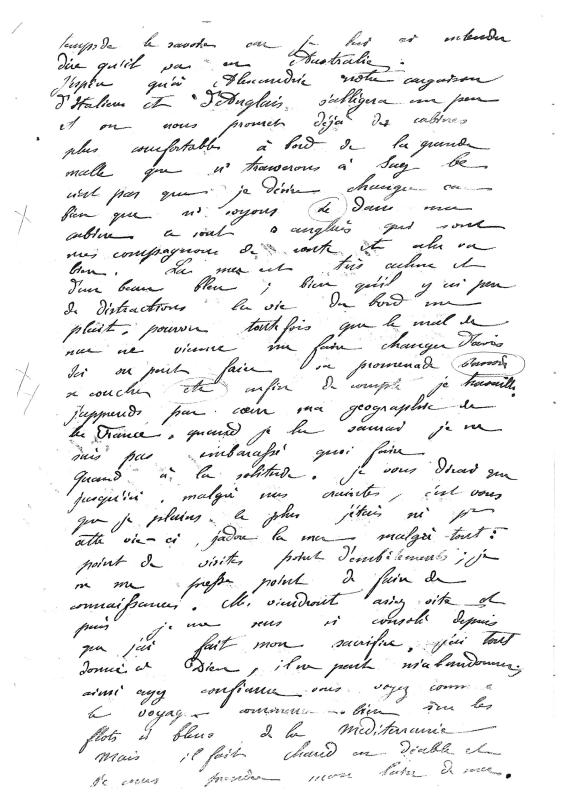 temps de le savoir car je lui ai entendu
dire qu'il va en Australie.
J'espère qu'à Alexandrie notre cargaison
d'Italiens et d'Anglais s'allègera un peu
et on nous promet déjà des cabines
plus confortables à bord de la grande
malle que n/ trouverons à Suez
c'est pas que je désire changer ca
bien que n/ soyons de dans ma
cabine ce sont anglais qui sont
mes compagnons de route et cela va
bien. La mer est très calme et
d'un beau bleu ; bien qu'il y ai peu
de distractions la vie du bord me
plait, pourvu toutefois que le mal de
mer ne vienne me faire changer d'avis
Ici on peut faire sa promenade
se coucher etc enfin de compte je travaille.
j'apprends par cœur ma géographie de
la France, quand je la saurai je ne
suis pas embarassé quoi faire
Quand à la solitude, je vous dirai que
jusqu'ici, malgré nos craintes, c'est vous
que je plains le plus j'étais né pr
cette vie-ci, j'adore la mer malgré tout :
point de visites point d'embêtements ; je
ne me presse point de faire de
connaissances. Elles viendront assez vite et
puis je me sens si consolé depuis
que j'ai fait mon sacrifice, j'ai tout
donné à Dieu, il ne peut m'abandonner
ainsi ayez confiance, vous voyez comme
le voyage commence bien sur les
flots si bleus de la Méditerranée
Mais il fait chaud en diable et
je vais prendre mon bain de mer.